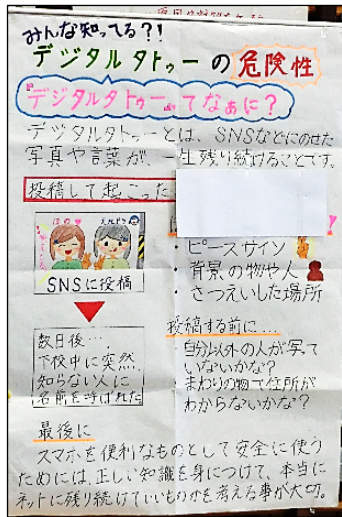 みんな知ってる?!
デジタルタトゥーの危険性
『デジタルタトゥー』ってなぁに?
デジタルタトゥーとは、SNSなどにのせた
写真や言葉が、一生残り続けることです。
投稿して起こった
SNSに投稿
数日後…
下校中に突然、
知らない人に
名前を呼ばれた
・ピースサイン
・背景の物や人
・さつえいした場所
投稿する前に…
・自分以外の人が写って
いないかな?
・まわりの物で住所が
わからないかな?
最後に
スマホを便利なものとして安全に使う
ためには、正しい知識を身につけて、本当に
ネットに残り続けていいものかを考える事が大切。